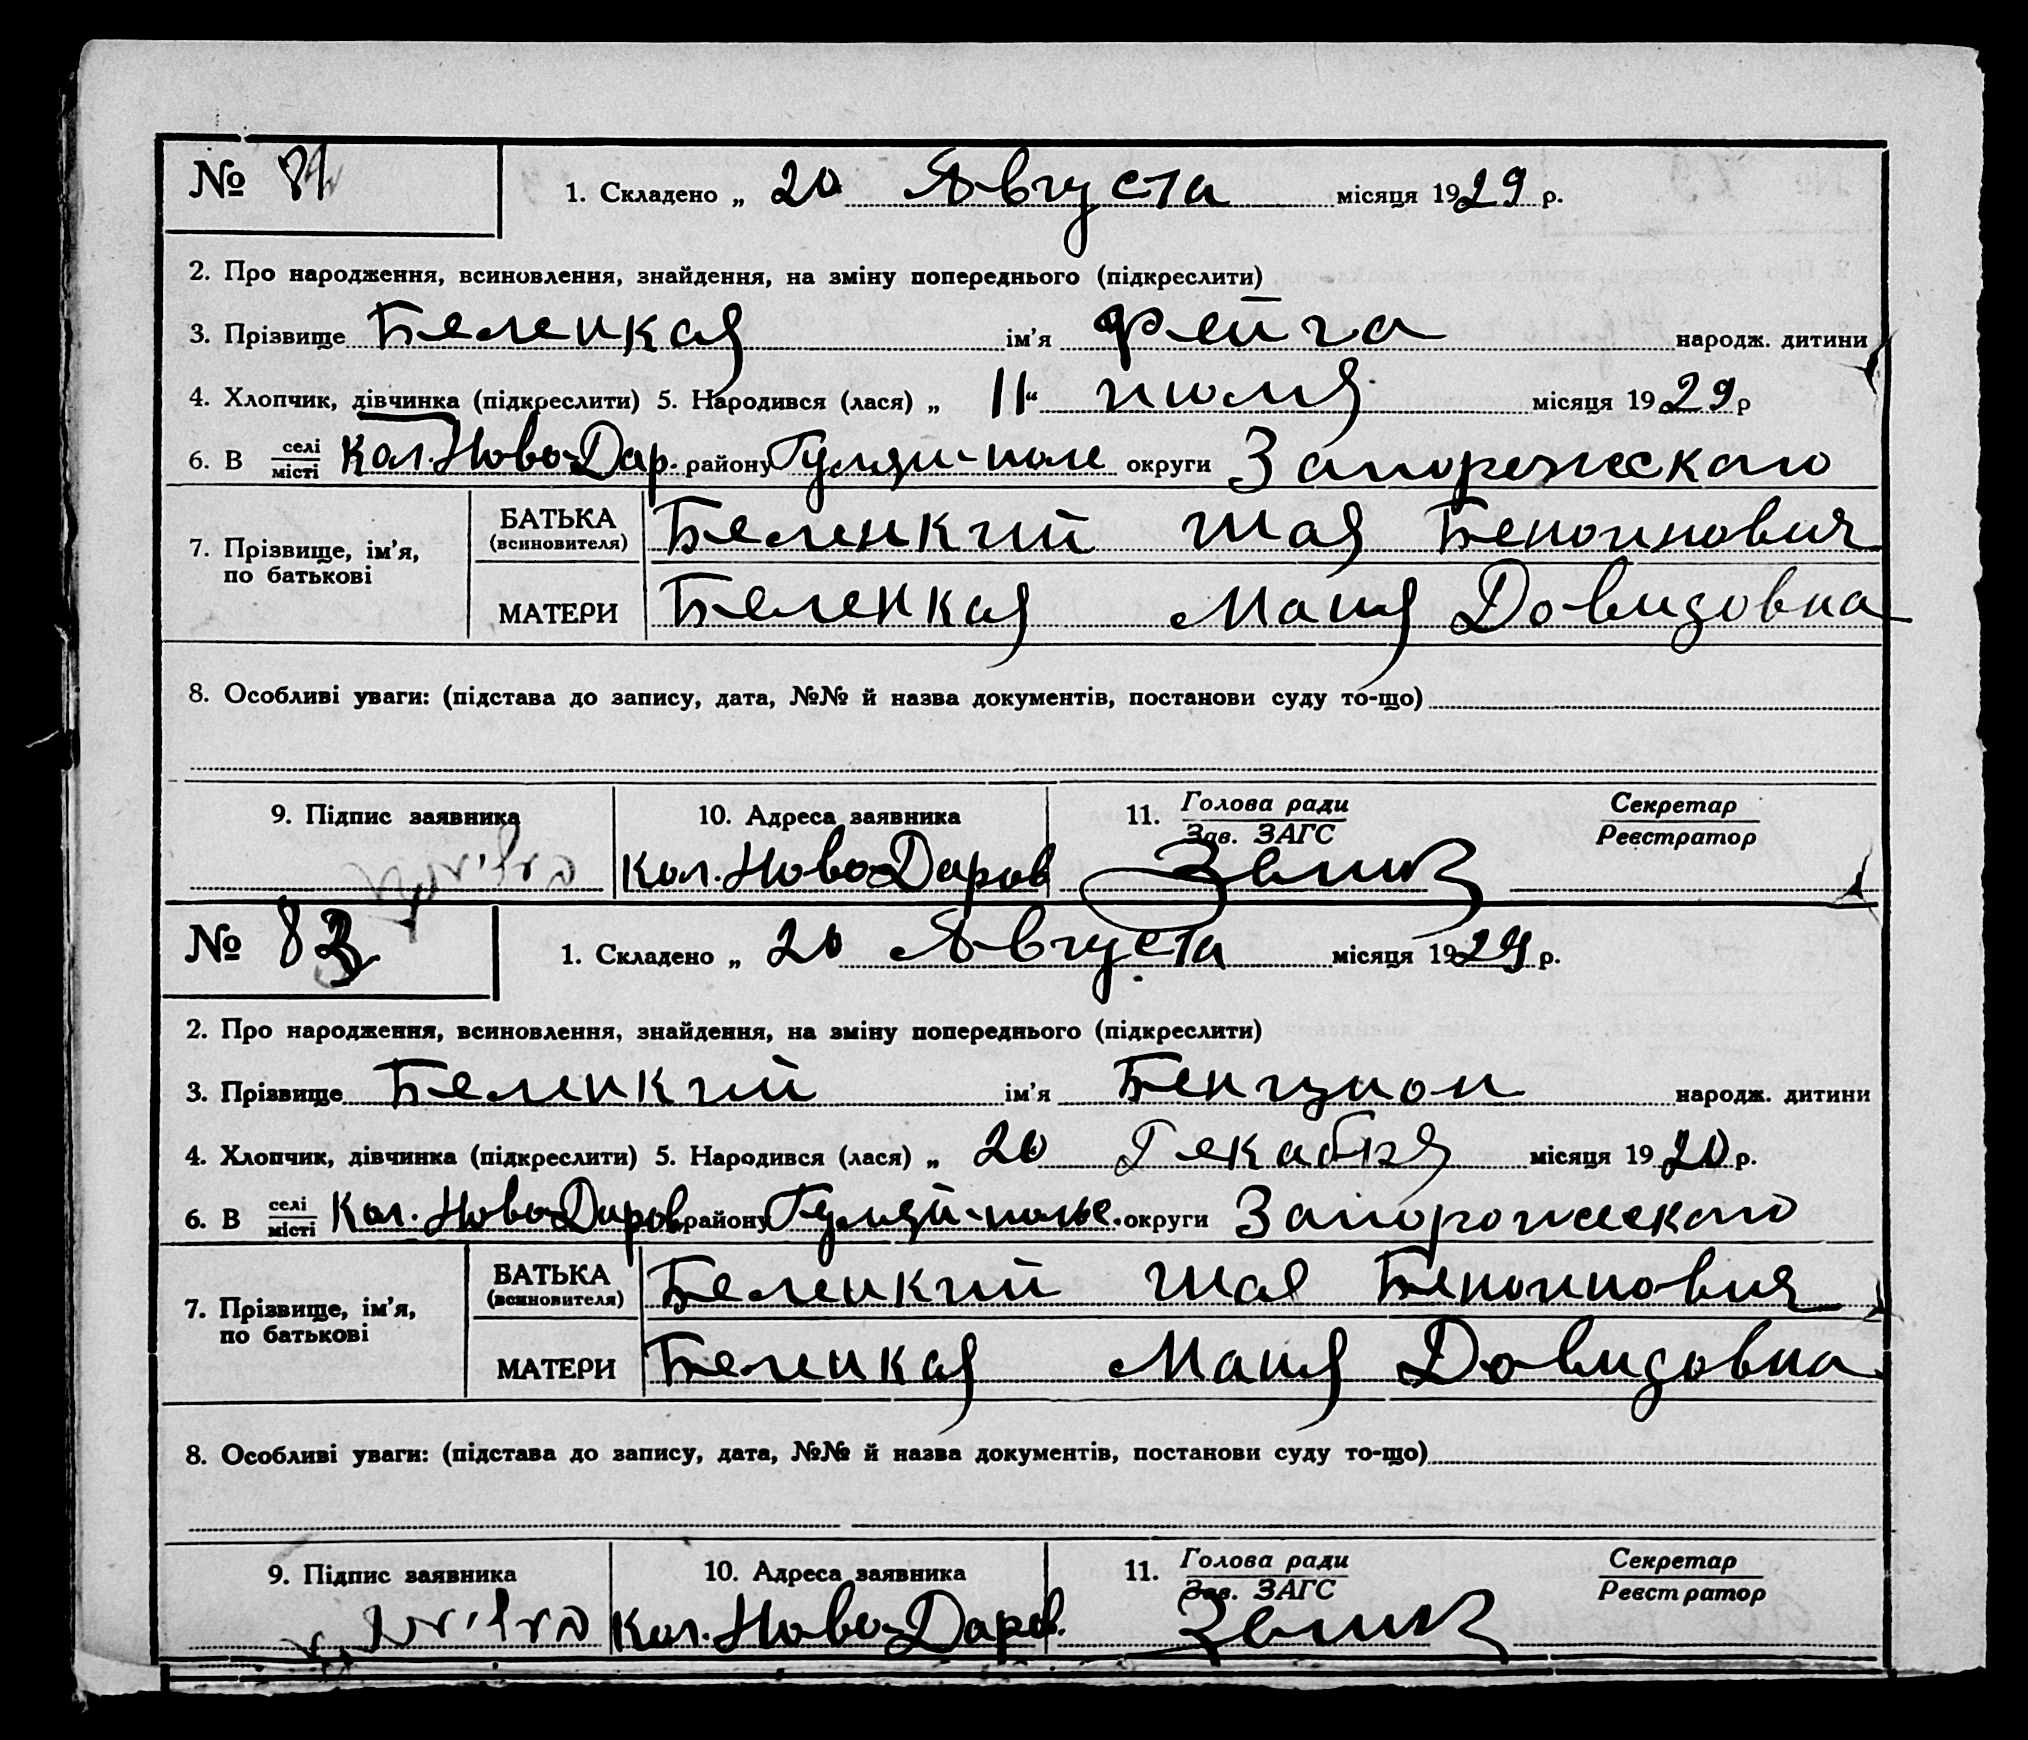 № 81
1. Складено „ 20 Августа місяця 1929 р.
2. Про народження, всиновлення, знайдення, на зміну попереднього (підкреслити)
3. Прізвище Беленкая ім'я Фейга народж. дитини
4. Хлопчик, дівчинка (підкреслити) 5. Народився (лася) „ 11“ июля місяця 1929 р
6. В селі місті Кол. Ново-Дар. району Гуляй-поле округи Запорожского
7. Прізвище, ім'я, по батькові
БАТЬКА (всиновителя) Беленкий Шая
МАТЕРИ Беленкая Маня Довидовна
8. Особливі уваги: (підстава до запису, дата, №№ й назва документів, постанови суду то-що)
9. Підпис заявника 10. Адреса заявника 11. Голова ради Зав. ЗАГС Секретар Реєстратор
Кол. Ново-Даров
№ 83
1. Складено „ 20 Августа місяця 1929 р.
2. Про народження, всиновлення, знайдення, на зміну попереднього (підкреслити)
3. Прізвище Беленкий ім'я Бенцион народж. дитини
4. Хлопчик, дівчинка (підкреслити) 5. Народився (лася) „ 20 Декабря місяця 1920 р.
6. В селі місті Кол. Ново-Даров району Гуляй-полье. округи Запорожского
7. Прізвище, ім'я, по батькові
БАТЬКА (всиновителя) Беленкий Шая
МАТЕРИ Беленкая Маня Довидовна
8. Особливі уваги: (підстава до запису, дата, №№ й назва документів, постанови суду то-що)
9. Підпис заявника 10. Адреса заявника 11. Голова ради Зав. ЗАГС Секретар Реєстратор
Кол. Ново-Даров.